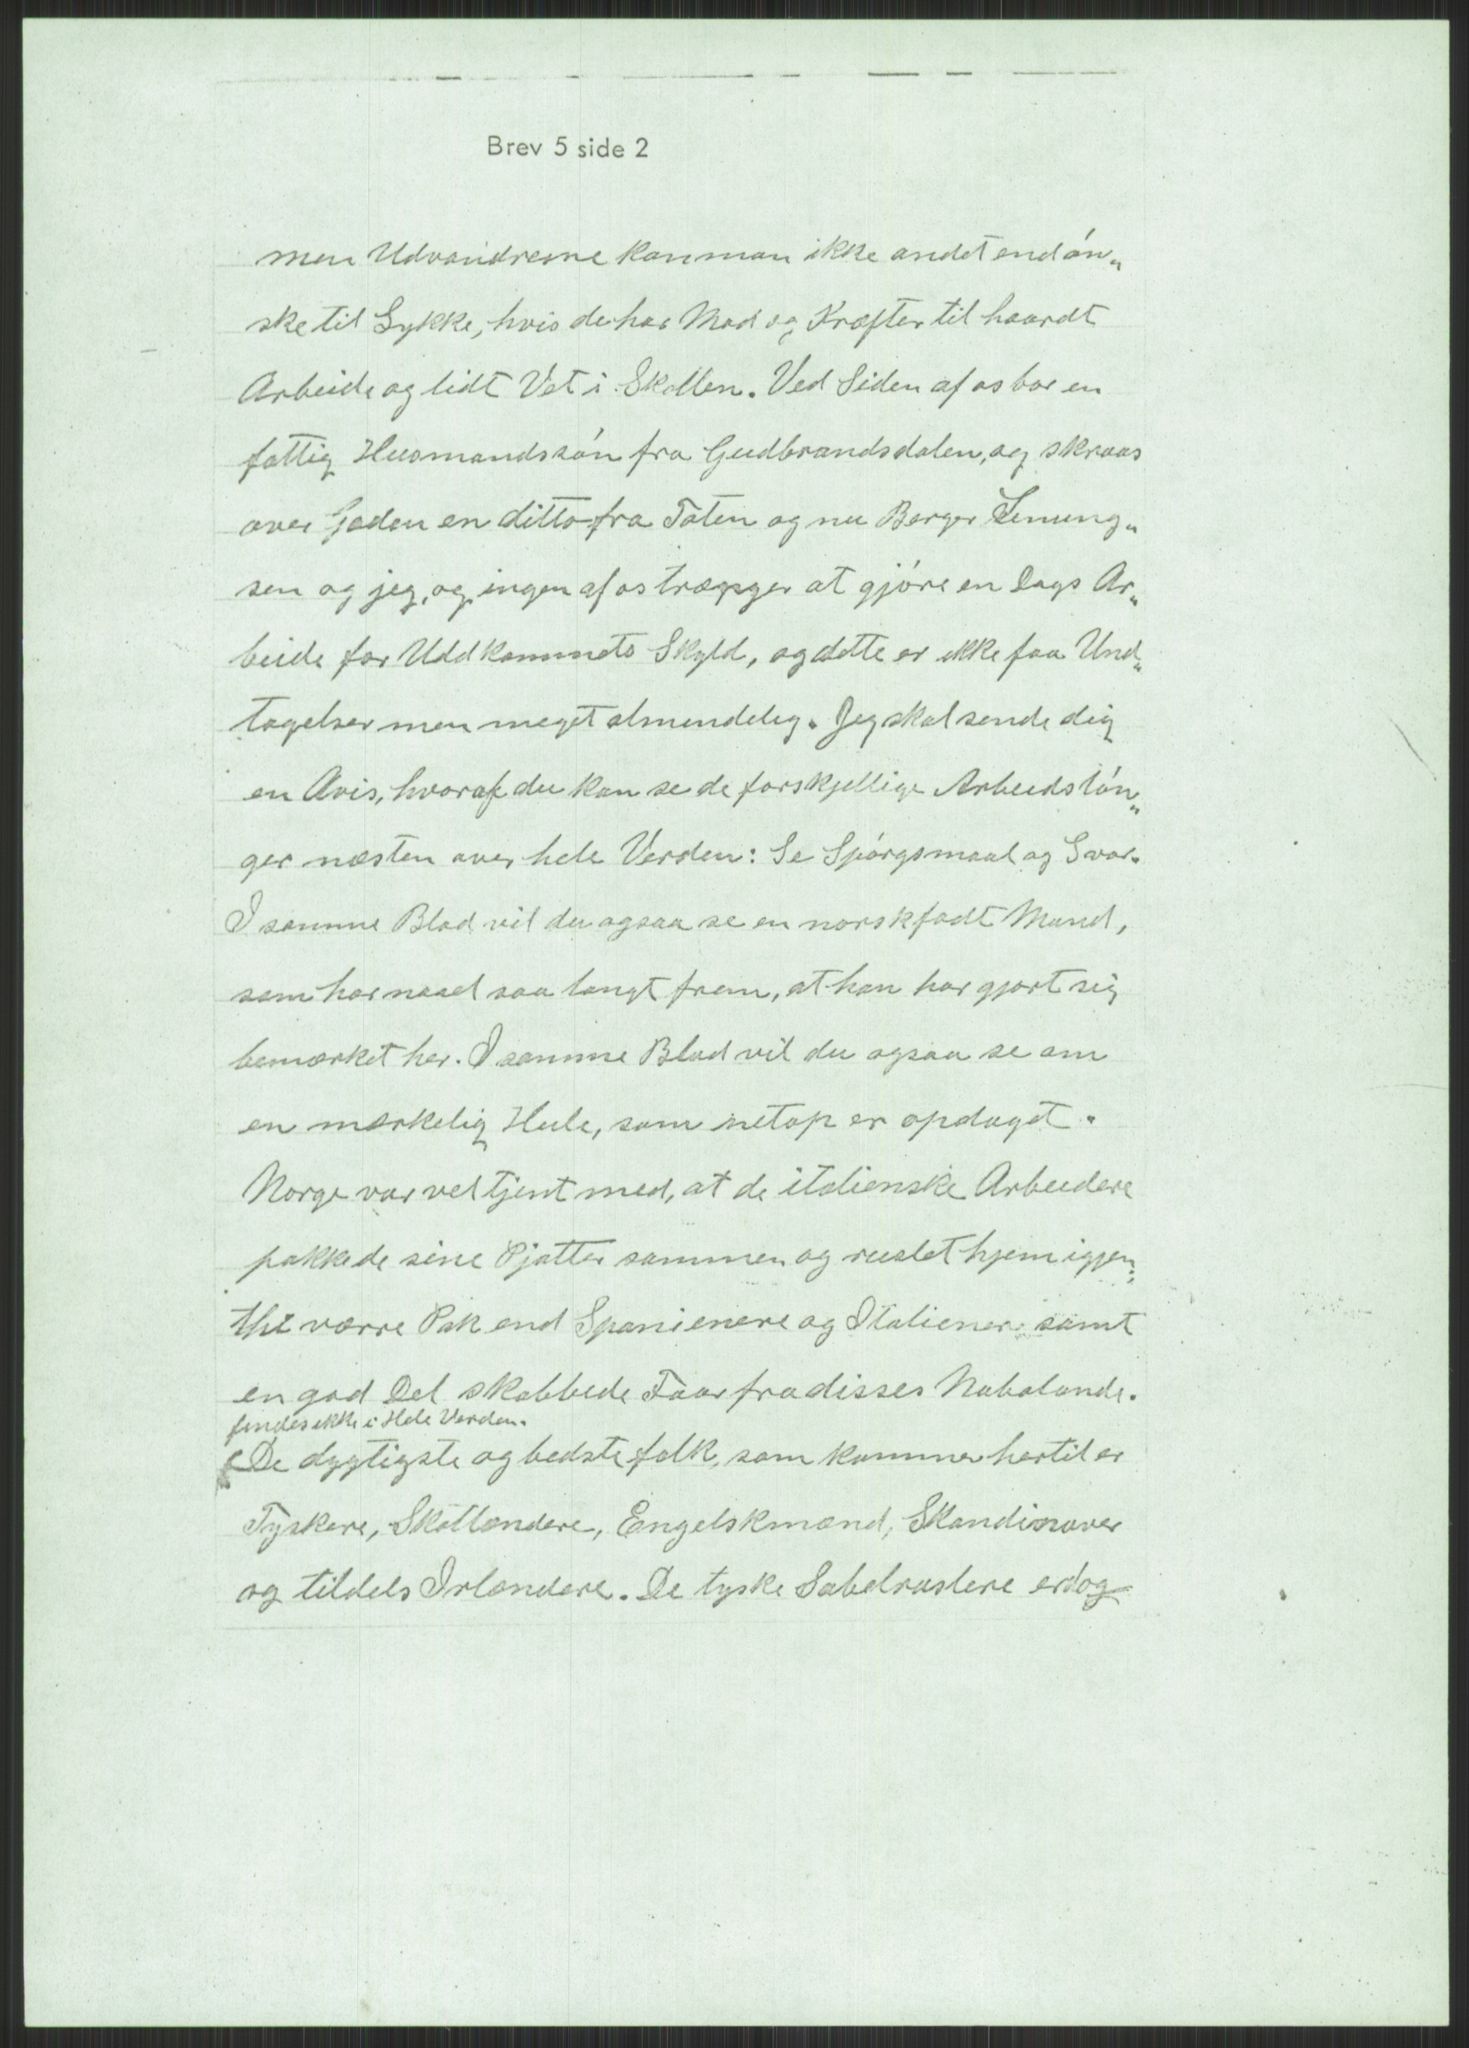 Brev 5 side 2
men Udvandrerne kan man ikke andet end øn„
ske til Lykke, hvis de har Mod og Kræfter til haardt
Arbeide og lidt Vet i Skollen. Ved Siden af os bor en
fattig Husmandssón fra Gudbrandsdalen, og skraas
over Gaden en ditto fra Toten og nu Borger
sen og jeg, og ingen af os trænger at gjóre en Dags Ar„
beide for Uddkommets Skyld, og dette er ikke faa Und„
tagelser men meget almendelig. Jeg skal sende dig
en Avis, hvoraf du kan se de forskjellige Arbeidslón„
ger næsten over hele Verden: Se Spórgsmaal og Svar.
I samme Blad vil du ogsaa se en norskfødt Mand,
som har naaed saa langt frem, at han har gjort sig
bemærket her. I samme Blad vil du ogsaa se om
en mærkelig Hule, som netop er opdaget.
Norge var vel tjent med, at de italienske Arbeidere
pakkede sine Pjatter sammen og ruslet hjem igjen;
thi værre Pak end Spanienere og Italiener samt
en god Del skabbede Faar fra disses Nabolande.
findes ikke i Hele Verden.
De dygtigste og bedste folk, som kommer hertil er
Tyskere, Skotlændere, Engelskmænd, Skandinaver
og tildels Irlændere. De tyske Sabelraslere er dog